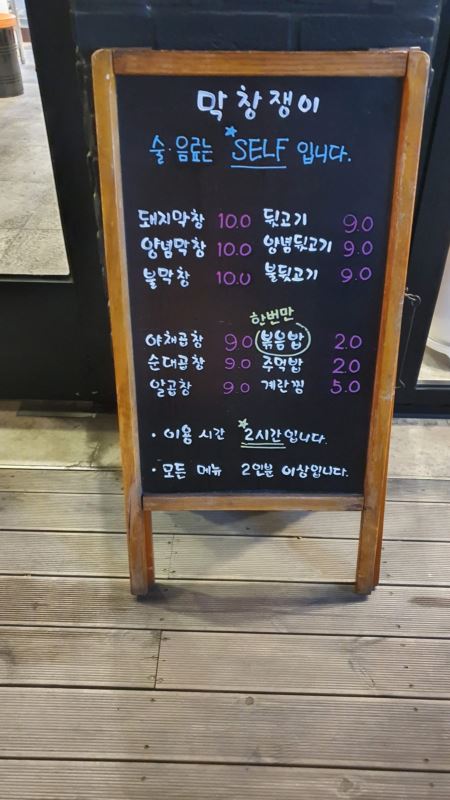 막창쟁이
술·음료는 SELF 입니다.
돼지막창 10.0 뒷고기 9.0
양념막창 10.0 양념뒷고기 9.0
불막창 10.0 불뒷고기 9.0
한번만
야채곱창 9.0 볶음밥 2.0
순대곱창 9.0 주먹밥 2.0
알곱창 9.0 계란찜 5.0
· 이용 시간 2시간입니다.
· 모든 메뉴 2인분 이상입니다.